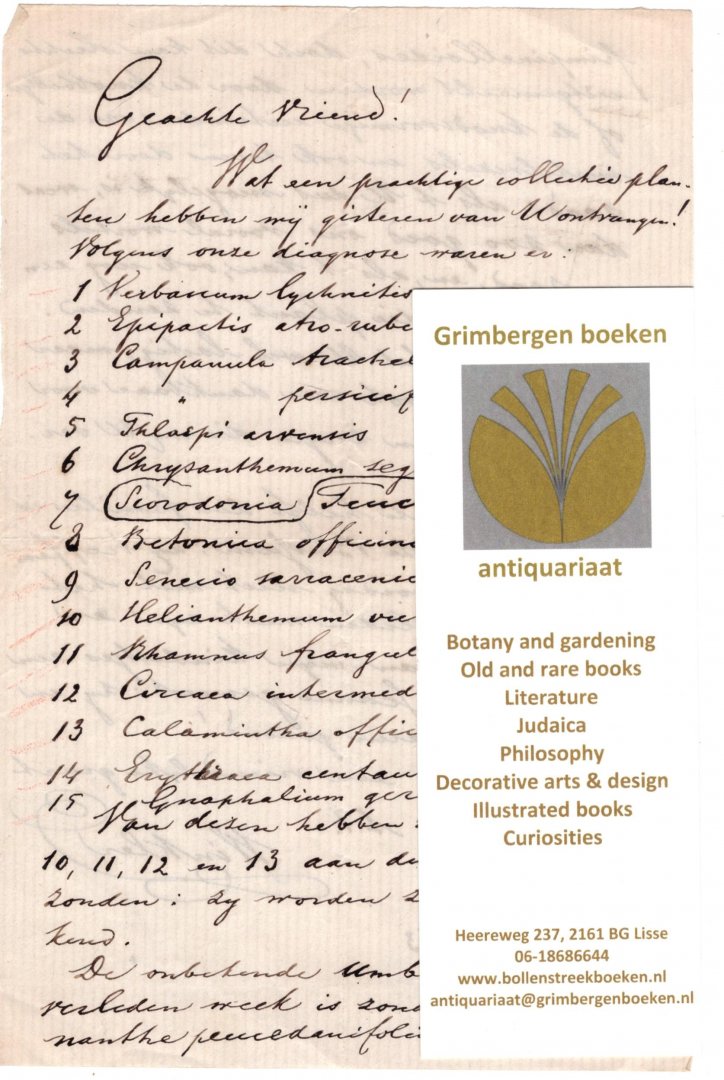 Geachte Vriend!
Wat een prachtige collectie plan-
ten hebben wij gisteren van U ontvangen!
Volgens onze diagnose waren er:
1 Verbascum lychnitis
2 Epipactis atro-rube
3 Campanula trachel
4 " persicif
5 Thlaspi arvensis
6 Chrysanthemum seg
7 Scorodonia Teuc
8 Betonica officin
9 Senecio sarracenic
10 Helianthemum vu
11 Rhamnus frangul
12 Circaea intermed
13 Calamintha offic
14 Erythraea centau
15 Gnaphalium ger
Van dezen hebben
10, 11, 12 en 13 aan d
zonden: zy worden
kend.
De onbekende Umb
verleden week is zond
nanthe peucedanifoli
Grimbergen boeken
antiquariaat
Botany and gardening
Old and rare books
Literature
Judaica
Philosophy
Decorative arts & design
Illustrated books
Curiosities
Heereweg 237, 2161 BG Lisse
06-18686644
www.bollenstreekboeken.nl
antiquariaat@grimbergenboeken.nl